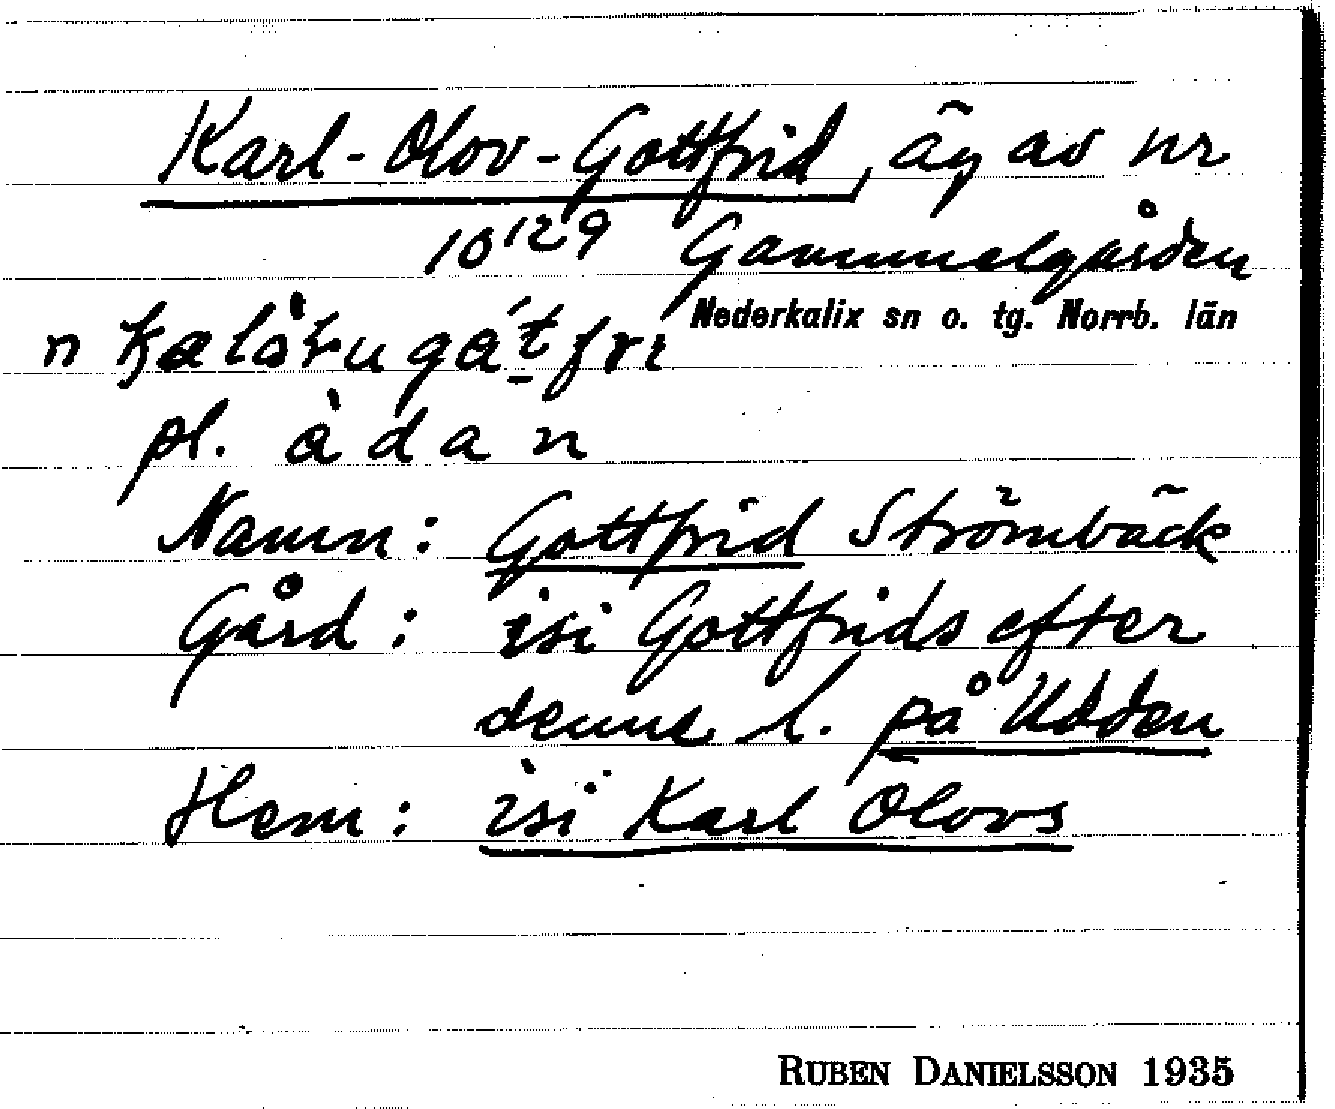 Karl-Olov-Gottfrid, äg av nr
10¹²⁹ Gammelgården
Nederkalix sn o. tg. Norrb. län
n
pl. àdan
Namn: Gottfrid Strömbäck
Gård: isi Gottfrids efter
denne l. på Udden
Hem: isi Karl Olovs
RUBEN DANIELSSON 1935